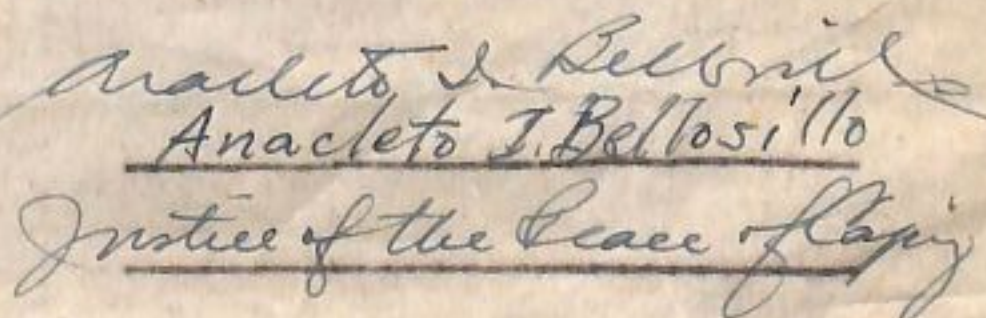 Anacleto I. Bellosillo
Anacleto I. Bellosillo
Justice of the Peace of Capiz